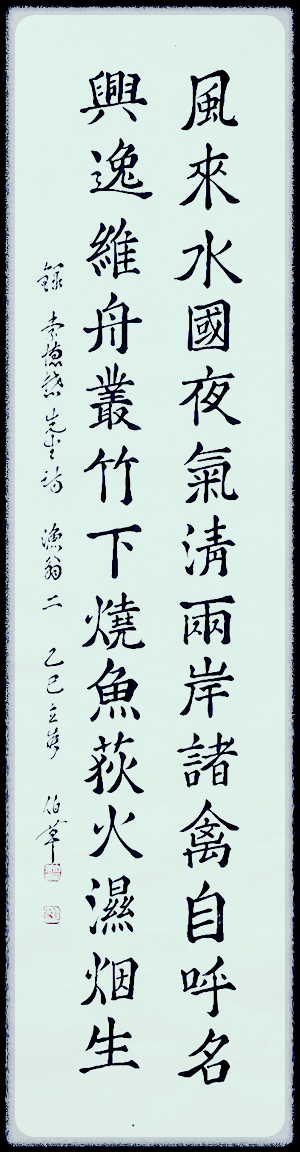 風來水國夜氣清兩岸諸禽自呼名
興逸維舟叢竹下燒魚荻火濕烟生
錄 先生詩 漁翁二 乙巳立 伯華